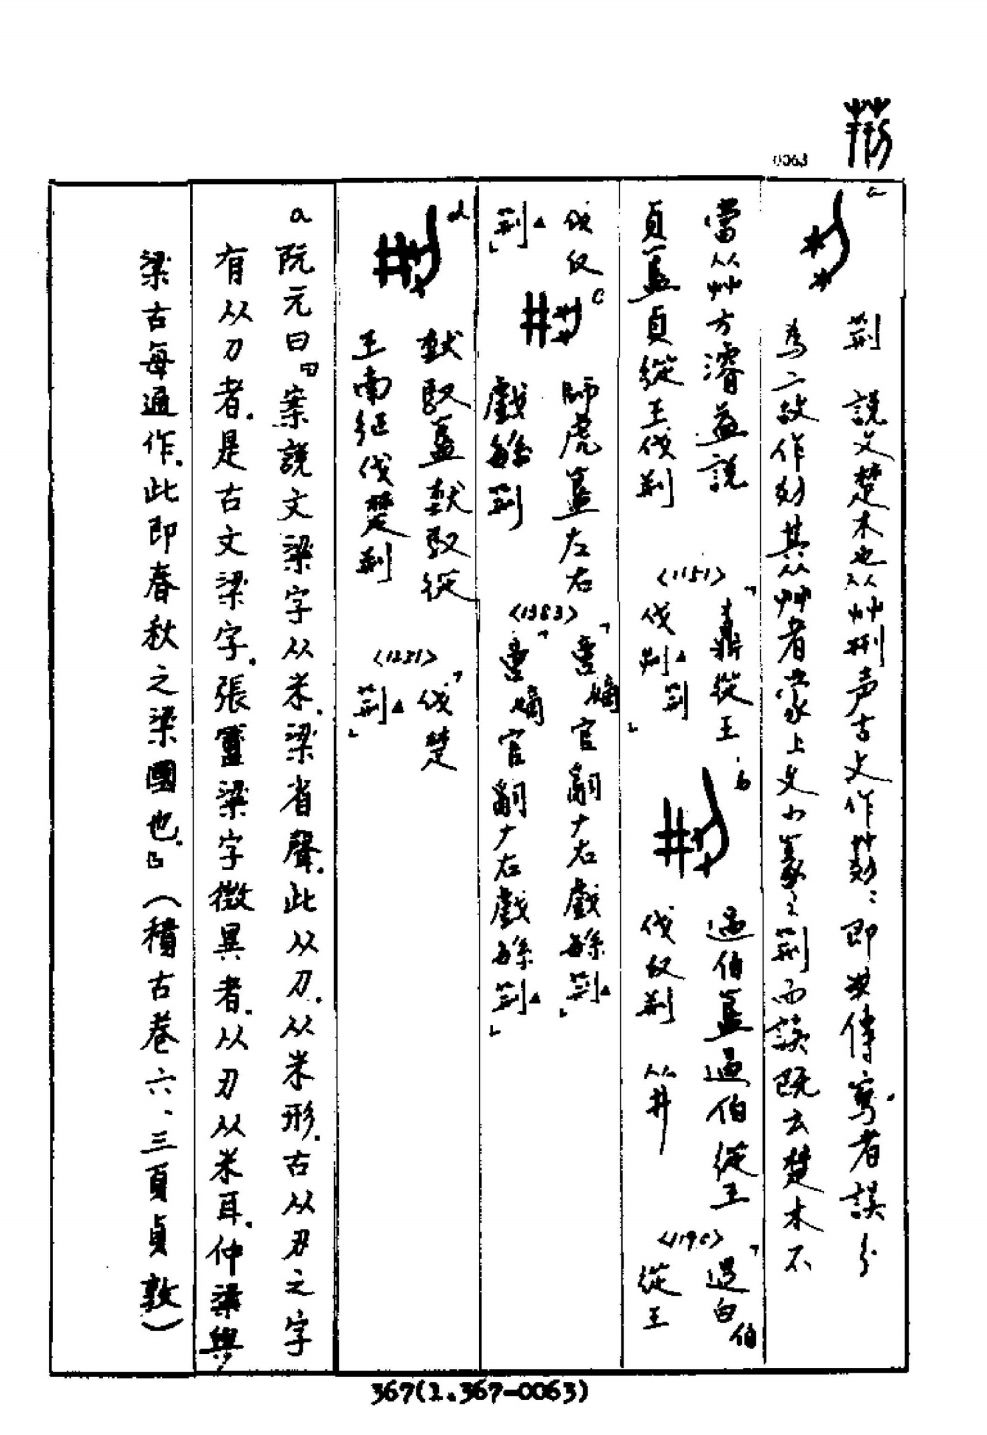 荆
0063
a
荆 說文楚木也从艸刑声古文作𦮙𦮙即 傳寫者誤分
為二故作 其从艸者蒙上文小篆之荆而誤既云楚木不
當从艸方濬益說
貞簋貞從王伐荆
<1151>
「 鼎從王
伐 荆」
b
過伯簋過伯從王
伐反荆 从井
<1190>
「過白伯
從王
伐反
荆」
c
師虎簋左右
戲緐荆
<1383>
「啻嫡官嗣ナ右戲緐荆」
「啻嫡官嗣ナ右戲緐荆」
d
㺇馭簋㺇馭從
王南征伐楚荆
<1231>
「伐楚
荆」
a 阮元曰「案說文梁字从米.梁省聲.此从刀.从米形.古从刅之字
有从刀者.是古文梁字.張 梁字微異者.从刃从米耳.仲梁與
梁古每通作.此即春秋之梁國也.」(積古卷六、三頁貞敦)
367(2.367-0063)